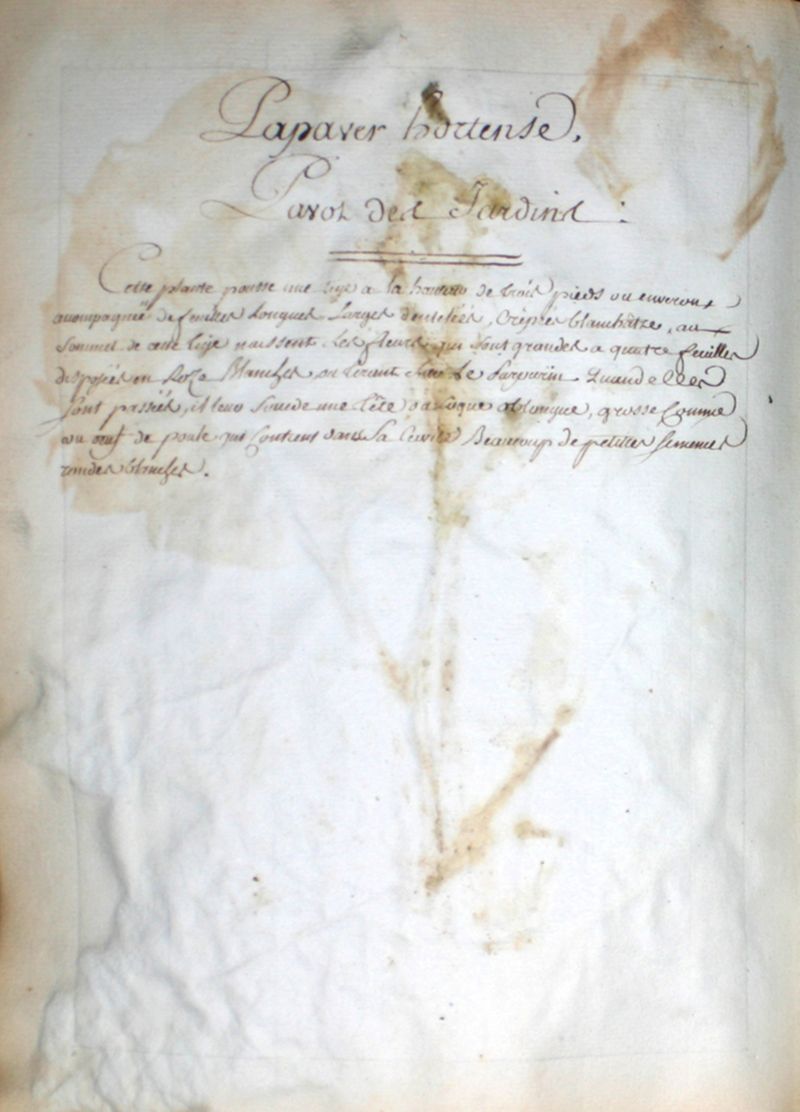 Papaver hortense,
Pavot des Jardins :
Cette plante pousse une tige a la hauteur de trois pieds ou environ,
acompagnée de feuilles Longues Larges dentelées, Crépées blanchâtre, au
sommet de cette tige naissent Les fleurs qui sont grandes a quatre feuilles
disposées en Roze Blanches, ou tirant sur Le Purpurin Quand elles
sont passées, il leur succede une tête oblongue, grosse Comme
un œuf de poule qui Contient dans Sa Cavité Beaucoup de petites semences
rondes blanches.